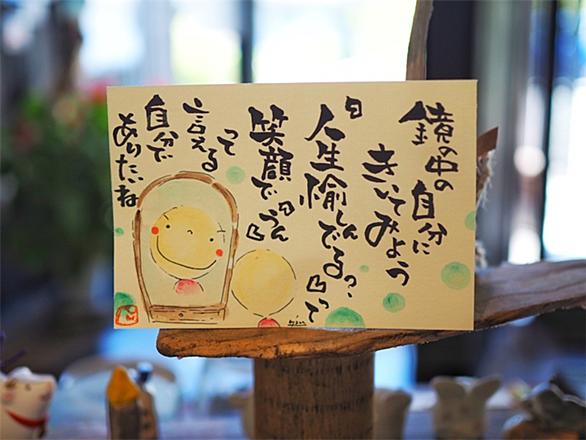 鏡の中の自分に
きいてみよう
『人生愉しんでるっ』って
笑顔で『うん』
って
言える
自分で
ありたいね